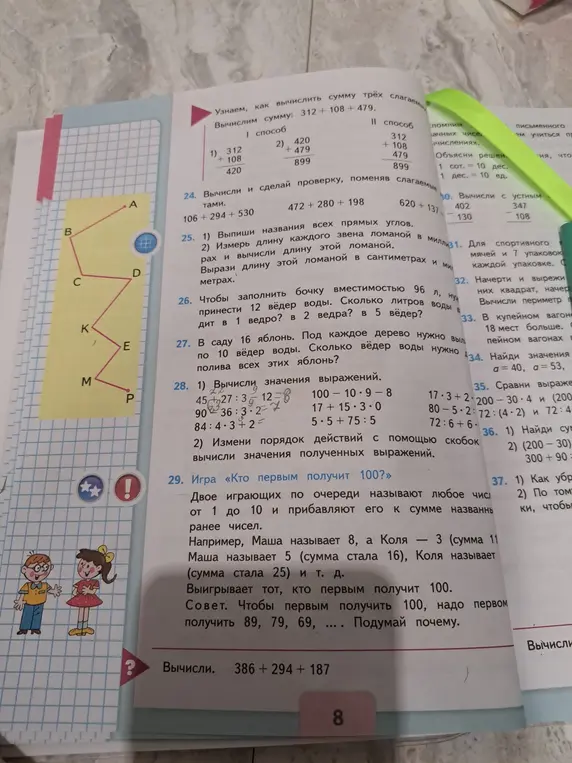 Узнаем, как вычислить сумму трёх
Вычислим сумму: 312 + 108 + 479.
I способ
II способ
1) 312
+ 108
420
2) 420
+ 479
899
312
+ 108
479
899
24. Вычисли и сделай проверку, поменяв
тами.
106 + 294 + 530 472 + 280 + 198 620 +
25. 1) Выпиши названия всех прямых углов.
2) Измерь длину каждого звена ломаной в
рах и вычисли длину этой ломаной.
Вырази длину этой ломаной в сантиметрах и
метрах.
26. Чтобы заполнить бочку вместимостью 96 л,
принести 12 вёдер воды. Сколько литров воды
дит в 1 ведро? в 2 ведра? в 5 вёдер?
27. В саду 16 яблонь. Под каждое дерево нужно
по 10 вёдер воды. Сколько вёдер воды нужно
полива всех этих яблонь?
28. 1) Вычисли значения выражений.
45 + 27 : 3 − 12 100 − 10 · 9 − 8 17 · 3 + 2
90 − 36 : 3 · 2 17 + 15 · 3 · 0 80 − 5 · 2
84 : 4 · 3 + 2 5 · 5 + 75 : 5 72 : 6 + 6
2) Измени порядок действий с помощью скобок
вычисли значения полученных выражений.
29. Игра «Кто первым получит 100?»
Двое играющих по очереди называют любое
от 1 до 10 и прибавляют его к сумме
ранее чисел.
Например, Маша называет 8, а Коля — 3 (сумма 11
Маша называет 5 (сумма стала 16), Коля называет
(сумма стала 25) и т. д.
Выигрывает тот, кто первым получит 100.
Совет. Чтобы первым получить 100, надо первом
получить 89, 79, 69, ... . Подумай почему.
Вычисли. 386 + 294 + 187
8
A
B
C
D
K
E
M
P
!
?
письменного
Объясни
1 сот. = 10 дес.
1 дес. = 10 ед.
30. Вычисли с устным
402 347
130 108
31. Для спортивного
мячей и 7 упаковок
каждой упаковке.
32. Начерти и вырежи
них квадрат,
Вычисли периметр
33. В купейном
18 мест больше.
пейном вагонах
34. Найди значения
a = 40, a = 53,
35. Сравни
200 − 30 · 4 и (200
72 : (4 · 2) и 72 : 4
36. 1) Найди
2) (200 − 30)
300 + 90
37. 1) Как
2) По
ки, чтобы
Вычисли